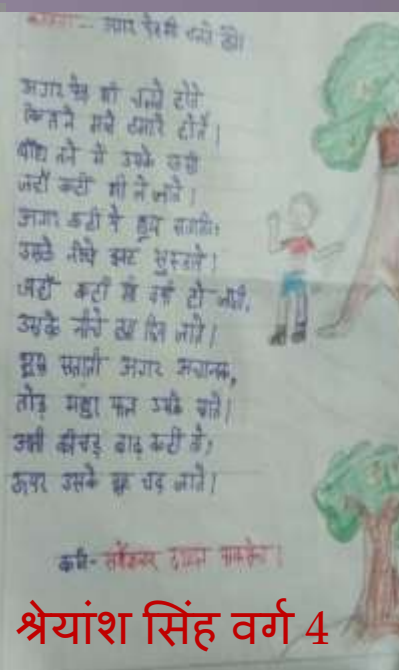 अगर पेड़ भी चलते होते
अगर पेड़ भी चलते होते
कितने मजे हमारे होते।
बाँध तने में उसके रस्सी
जहाँ कहीं भी ले जाते।
अगर कहीं पे धूप सताती,
उसके नीचे झट सुस्ताते।
जहाँ कहीं भी वर्षा हो जाती,
उसके नीचे हम छिप जाते।
भूख सताती अगर अचानक,
तोड़ मधुर फल उसके खाते।
आती कीचड़ बाढ़ कहीं से,
ऊपर उसके झट चढ़ जाते।
कवि-
श्रेयांश सिंह वर्ग 4